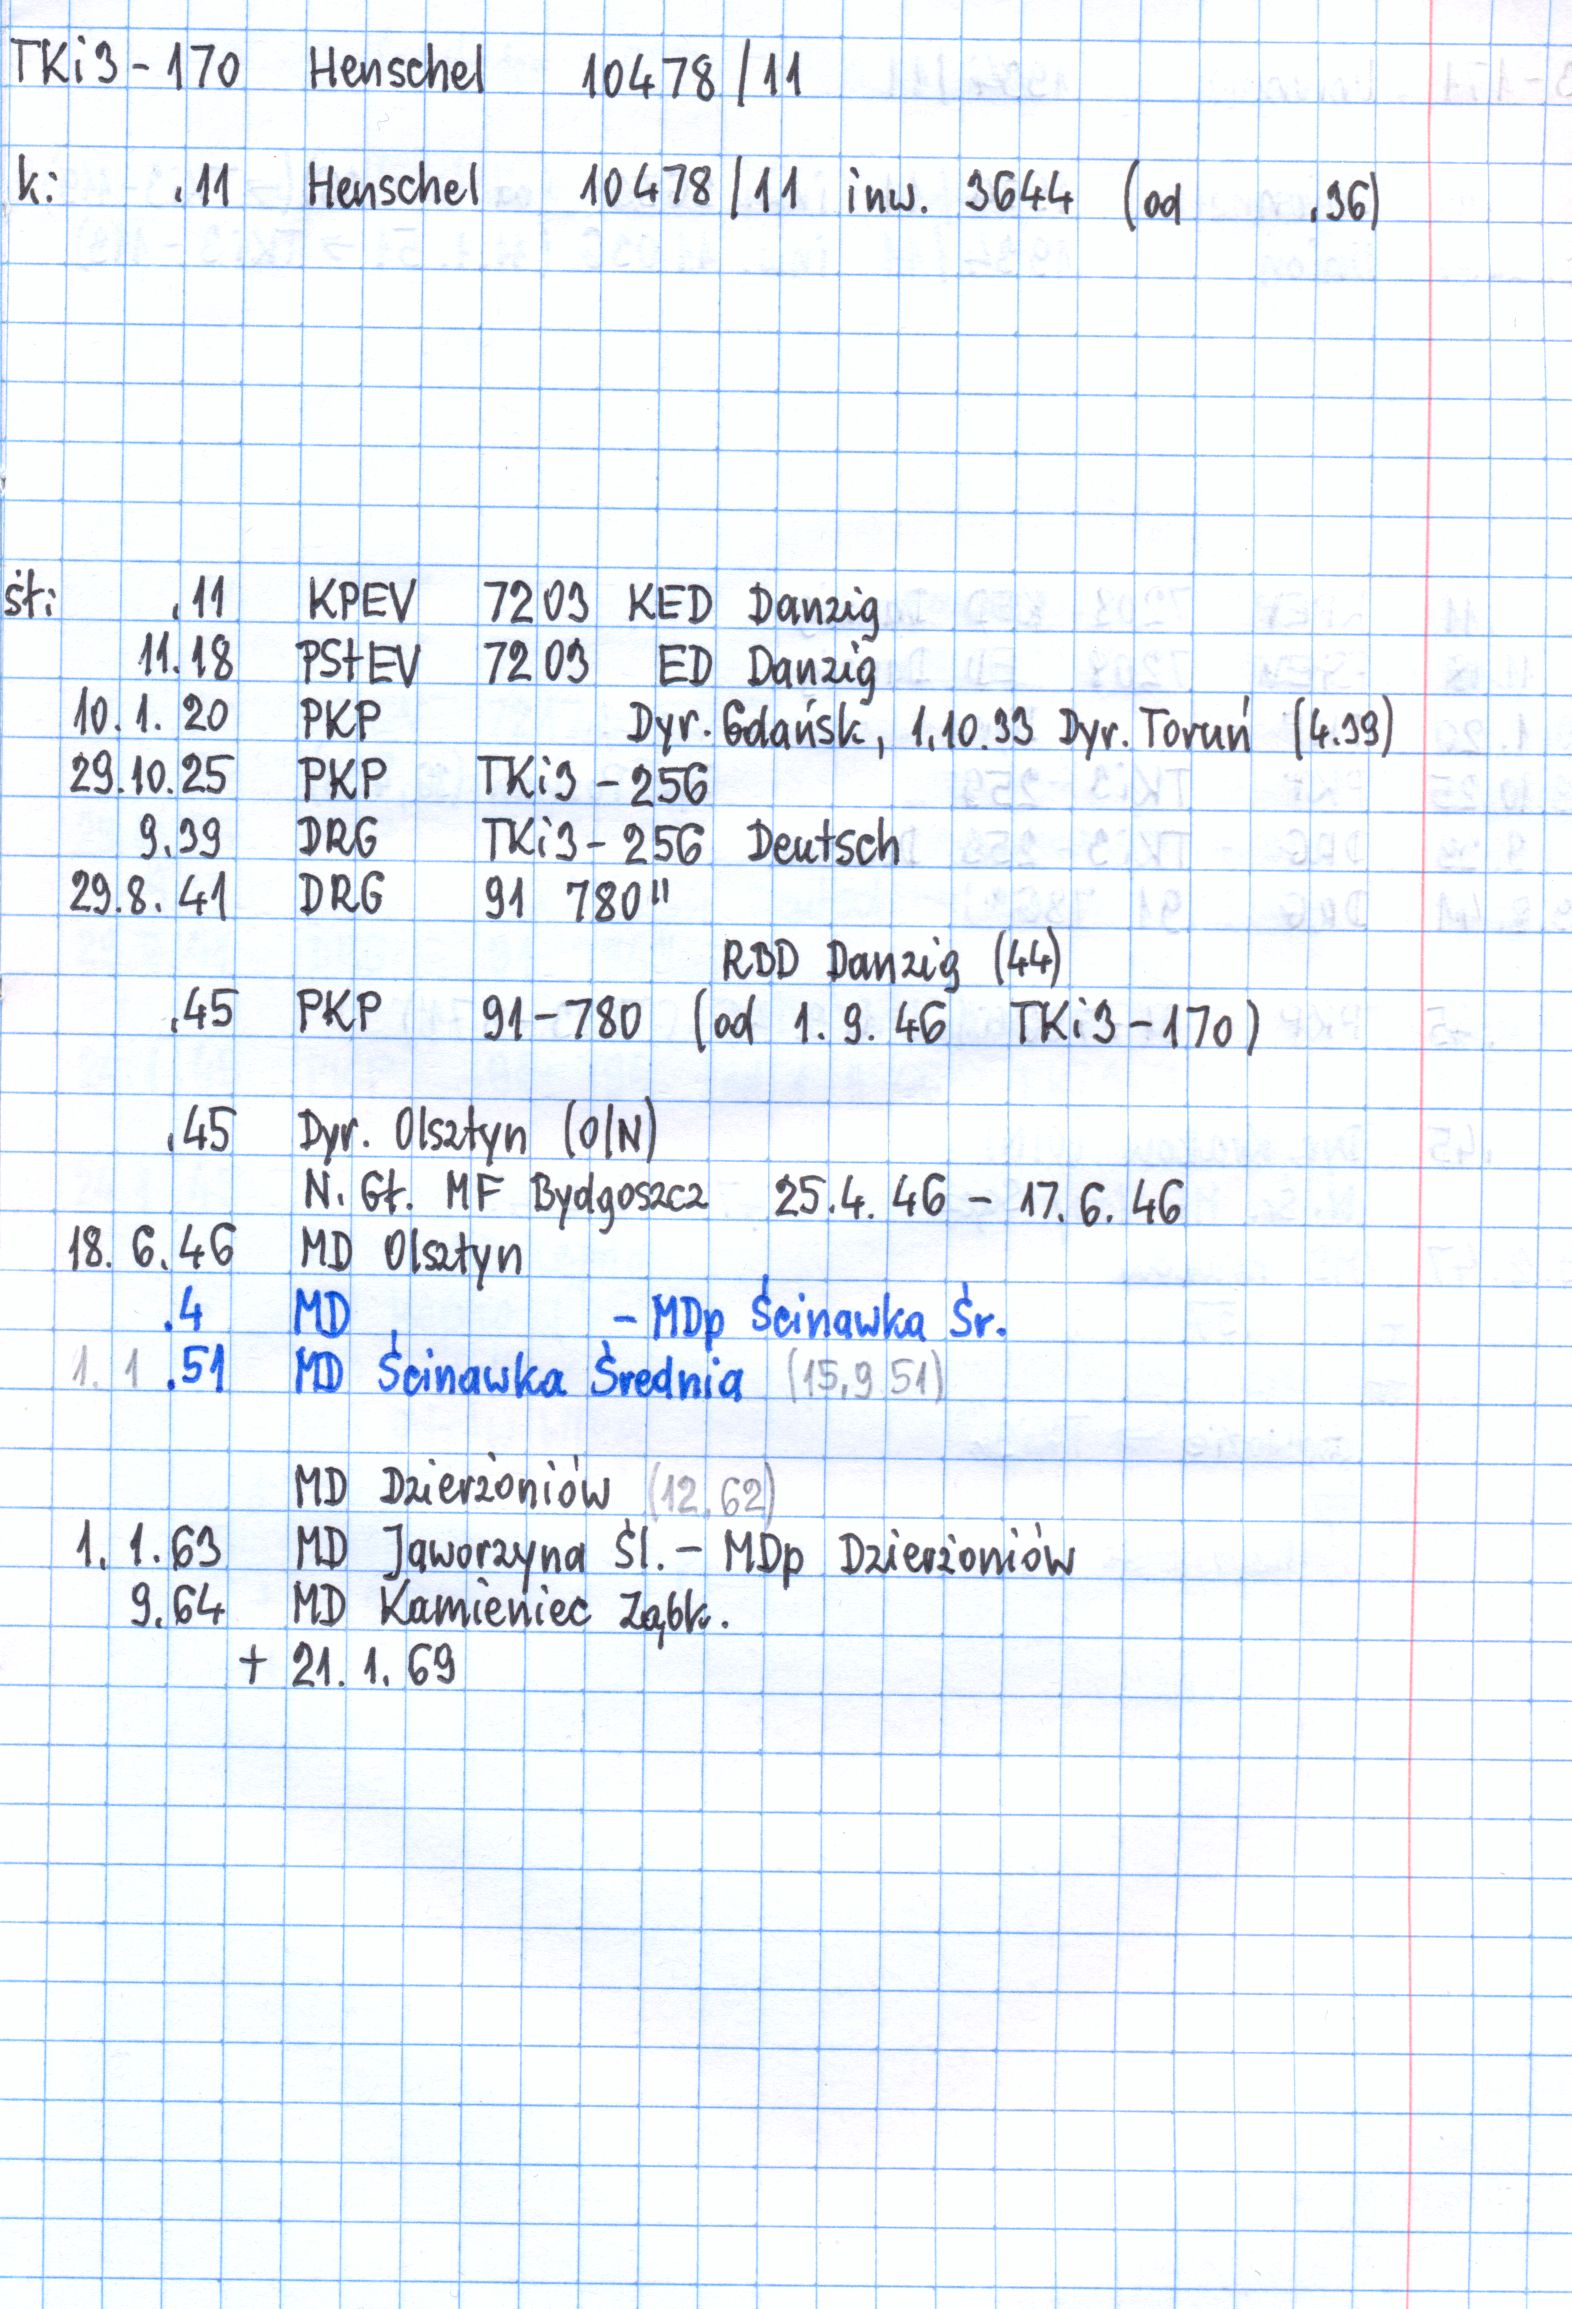 TKi3-170 Henschel 10478/11
k: .11 Henschel 10478/11 inw. 3644 (od .36)
śt: .11 KPEV 7203 KED Danzig
11.18 PStEV 7203 ED Danzig
10.1.20 PKP Dyr. Gdańsk, 1.10.33 Dyr. Toruń (4.39)
29.10.25 PKP TKi3-256
9.39 DRG TKi3-256 Deutsch
29.8.41 DRG 91 780"
RBD Danzig (44)
.45 PKP 91-780 (od 1.9.46 TKi3-170)
.45 Dyr. Olsztyn (O/N)
N. Gł. MF Bydgoszcz 25.4.46 - 17.6.46
18.6.46 MD Olsztyn
.4 MD - MDp Ścinawka Śr.
1.1.51 MD Ścinawka Średnia (15.9 51)
MD Dzierżoniów (12.62)
1.1.63 MD Jaworzyna Śl. - MDp Dzierżoniów
9.64 MD Kamieniec Ząbk.
+ 21.1.69